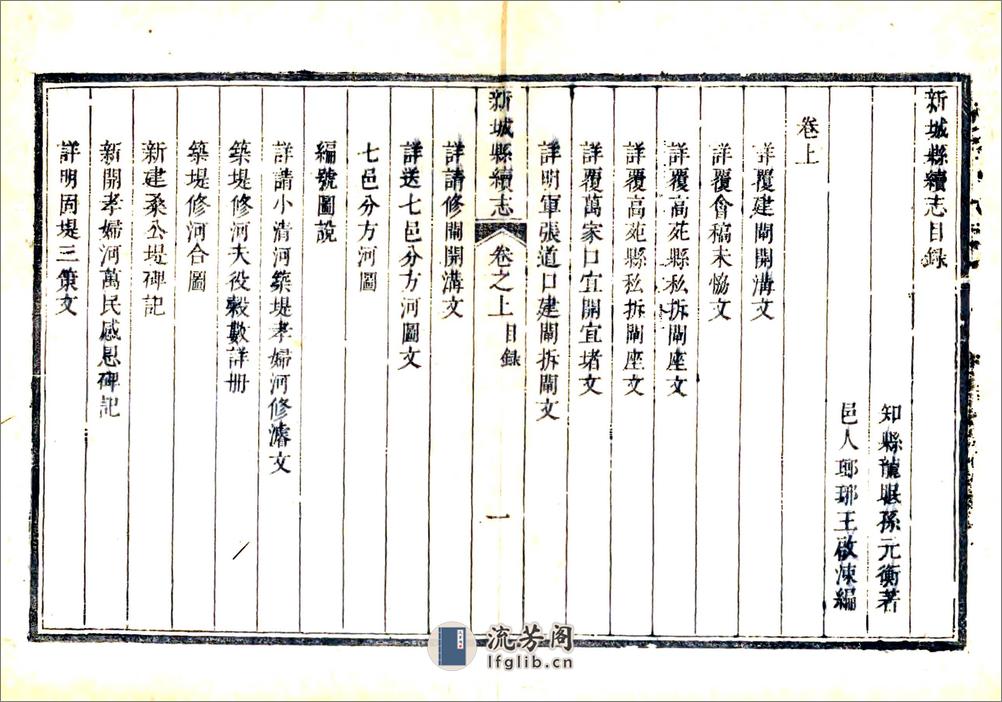 新城縣續志目錄
知縣龍眠孫元衡著
邑人瑯琊王啟涑編
卷上
詳覆建閘開溝文
詳覆會稿未恊文
詳覆高苑縣私拆閘座文
詳覆高苑縣私拆閘座文
詳覆萬家口宜開宜堵文
詳明軍張道口建閘拆閘文
新城縣續志
卷之上
目録
一
詳請修閘開溝文
詳送七邑分方河圖文
七邑分方河圖
編號圖說
詳請小清河築堤孝婦河修濬文
築堤修河夫役穀數詳册
築堤修河合圖
新建桑公堤碑記
新開孝婦河萬民感恩碑記
詳明固堤三策文
流芳阁
lfglib.cn